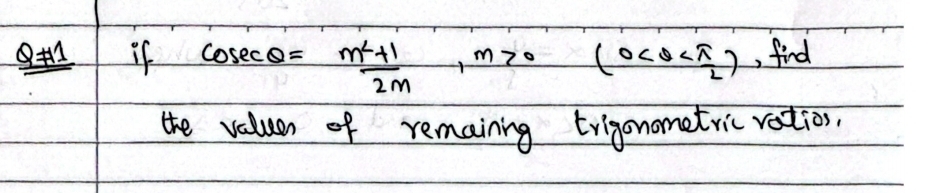 Q#1 if cosecθ = m²+1/2m , m>0 (0<θ<π/2), find
the values of remaining trigonometric ratios.